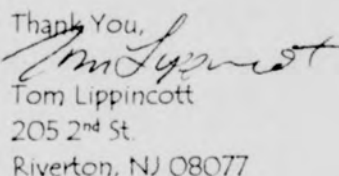 Thank You,
Tom Lippincott
Tom Lippincott
205 2nd St.
Riverton, NJ 08077